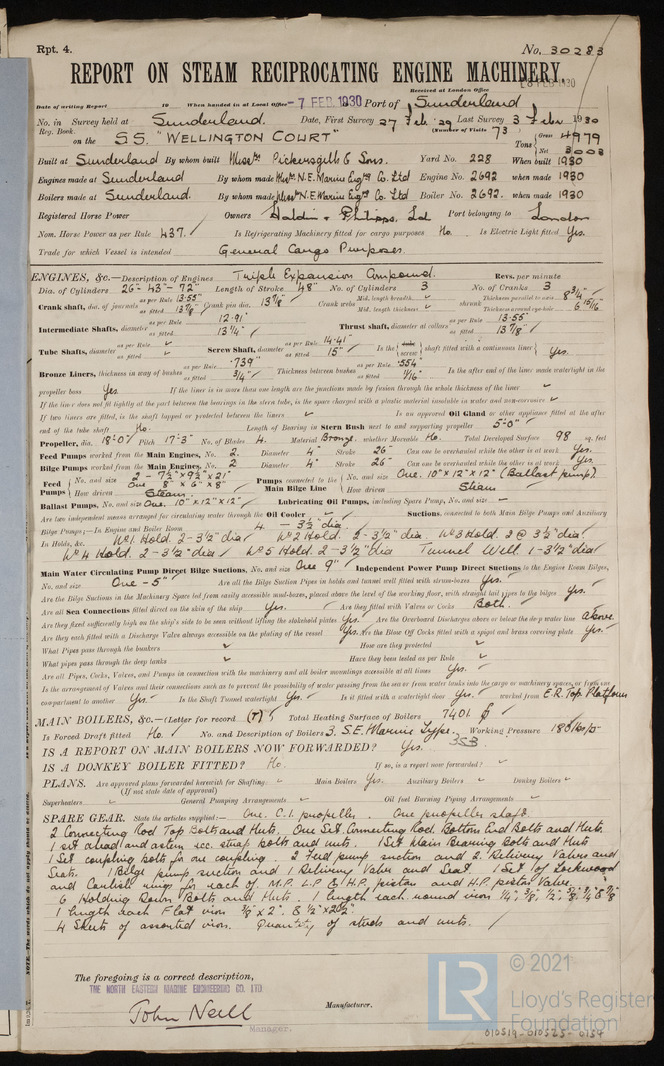 Rpt. 4. No. 30283
REPORT ON STEAM RECIPROCATING ENGINE MACHINERY.
Received at London Office 8 FEB 1930
Date of writing Report 19 When handed in at Local Office - 7 FEB. 1930 Port of Sunderland
No. in Survey held at Sunderland. Date, First Survey 27 Feb '29 Last Survey 3 Feby 1930
Reg. Book. (Number of Visits 73)
on the S.S. "WELLINGTON COURT" Tons Gross 4979 Net 3003
Built at Sunderland By whom built Messrs Pickersgill & Sons. Yard No. 228 When built 1930
Engines made at Sunderland By whom made Messrs N.E. Marine Engrg Co. Ltd Engine No. 2692 when made 1930
Boilers made at Sunderland. By whom made Messrs N.E. Marine Engrg Co. Ltd Boiler No. 2692. when made 1930
Registered Horse Power Owners Haldin & Philipps, Ltd Port belonging to London
Nom. Horse Power as per Rule 437. Is Refrigerating Machinery fitted for cargo purposes No. Is Electric Light fitted Yes.
Trade for which Vessel is intended General Cargo Purposes.
ENGINES, &c.—Description of Engines Triple Expansion Compound. Revs. per minute
Dia. of Cylinders 26"- 43"- 72" Length of Stroke 48" No. of Cylinders 3 No. of Cranks 3
Crank shaft, dia. of journals as per Rule 13.55" as fitted 13 7/8" Crank pin dia. 13 7/8" Crank webs Mid. length breadth Mid. length thickness shrunk Thickness parallel to axis 8 3/4" Thickness around eye-hole 6 15/16"
Intermediate Shafts, diameter as per Rule 12.91" as fitted 13 1/4" Thrust shaft, diameter at collars as per Rule 13.55" as fitted 13 7/8"
Tube Shafts, diameter as per Rule as fitted Screw Shaft, diameter as per Rule 14.41" as fitted 15" Is the tube screw shaft fitted with a continuous liner Yes.
Bronze Liners, thickness in way of bushes as per Rule .739" as fitted 3/4" Thickness between bushes as per Rule .554" as fitted 11/16" Is the after end of the liner made watertight in the
propeller boss Yes. If the liner is in more than one length are the junctions made by fusion through the whole thickness of the liner
If the liner does not fit tightly at the part between the bearings in the stern tube, is the space charged with a plastic material insoluble in water and non-corrosive
If two liners are fitted, is the shaft lapped or protected between the liners Is an approved Oil Gland or other appliance fitted at the after
end of the tube shaft No. Length of Bearing in Stern Bush next to and supporting propeller 5'-0"
Propeller, dia. 18'-0" Pitch 17'-3" No. of Blades 4. Material Bronze. whether Moveable No. Total Developed Surface 98 sq. feet
Feed Pumps worked from the Main Engines, No. 2. Diameter 4" Stroke 26" Can one be overhauled while the other is at work Yes.
Bilge Pumps worked from the Main Engines, No. 2 Diameter 4" Stroke 26" Can one be overhauled while the other is at work Yes.
Feed Pumps No. and size 2 - 7 1/2" x 9 1/2" x 21" One 8" x 6" x 8" How driven Steam. Pumps connected to the Main Bilge Line No. and size One. 10" x 12" x 12" (Ballast pump). How driven Steam
Ballast Pumps, No. and size One. 10" x 12" x 12" Lubricating Oil Pumps, including Spare Pump, No. and size
Are two independent means arranged for circulating water through the Oil Cooler Suctions, connected to both Main Bilge Pumps and Auxiliary
Bilge Pumps;—In Engine and Boiler Room 4 — 3 1/2" dia.
In Holds, &c. No 1 Hold. 2 - 3 1/2" dia No 2 Hold. 2 - 3 1/2" dia No 3 Hold. 2 @ 3 1/2" dia.
No 4 Hold. 2 - 3 1/2" dia No 5 Hold. 2 - 3 1/2" dia Tunnel Well. 1 - 3 1/2" dia
Main Water Circulating Pump Direct Bilge Suctions, No. and size One 9" Independent Power Pump Direct Suctions to the Engine Room Bilges,
No. and size One - 5" Are all the Bilge Suction Pipes in holds and tunnel well fitted with strum-boxes Yes.
Are the Bilge Suctions in the Machinery Space led from easily accessible mud-boxes, placed above the level of the working floor, with straight tail pipes to the bilges Yes.
Are all Sea Connections fitted direct on the skin of the ship Yes. Are they fitted with Valves or Cocks Both.
Are they fixed sufficiently high on the ship's side to be seen without lifting the stokehold plates Yes. Are the Overboard Discharges above or below the deep water line above
Are they each fitted with a Discharge Valve always accessible on the plating of the vessel Yes. Are the Blow Off Cocks fitted with a spigot and brass covering plate Yes.
What Pipes pass through the bunkers How are they protected
What pipes pass through the deep tanks Have they been tested as per Rule
Are all Pipes, Cocks, Valves, and Pumps in connection with the machinery and all boiler mountings accessible at all times Yes.
Is the arrangement of Valves and their connections such as to prevent the possibility of water passing from the sea or from water tanks into the cargo or machinery spaces, or from one
compartment to another Yes. Is the Shaft Tunnel watertight Yes. Is it fitted with a watertight door Yes. worked from E.R. Top Platform
MAIN BOILERS, &c.—(Letter for record (T)) Total Heating Surface of Boilers 7401
Is Forced Draft fitted No. No. and Description of Boilers 3. S.E. Marine Type. 3SB Working Pressure 180 lbs/□"
IS A REPORT ON MAIN BOILERS NOW FORWARDED? Yes.
IS A DONKEY BOILER FITTED? No. If so, is a report now forwarded?
PLANS. Are approved plans forwarded herewith for Shafting Main Boilers Yes. Auxiliary Boilers Donkey Boilers
(If not state date of approval)
Superheaters General Pumping Arrangements Oil fuel Burning Piping Arrangements
SPARE GEAR. State the articles supplied:— One. C.I. propeller. One propeller shaft.
2 Connecting Rod Top Bolts and Nuts, One Set Connecting Rod Bottom End Bolts and Nuts.
1 set ahead and astern ecc. strap bolts and nuts. 1 Set Main Bearing Bolts and Nuts
1 Set coupling bolts for one coupling. 2 Feed pump suction and 2 Delivery Valves and
Seats. 1 Bilge pump suction and 1 Delivery Valve and Seat. 1 Set of Lockwood
and Carlisle rings for each of M.P. L.P & H.P. piston and H.P. piston Valve.
6 Holding Down Bolts and Nuts. 1 length each round iron 1/4", 3/8", 1/2", 5/8", 3/4" & 7/8"
1 length each Flat iron 3/8" x 2" & 1/2" x 2 1/2".
4 Sheets of assorted iron. Quantity of studs and nuts.
The foregoing is a correct description,
THE NORTH EASTERN MARINE ENGINEERING CO. LTD
John Neill Manufacturer.
Manager.
NOTE.—The words which do not apply should be deleted.
LR
© 2021
Lloyd's Register
Foundation
010519-010525-0134